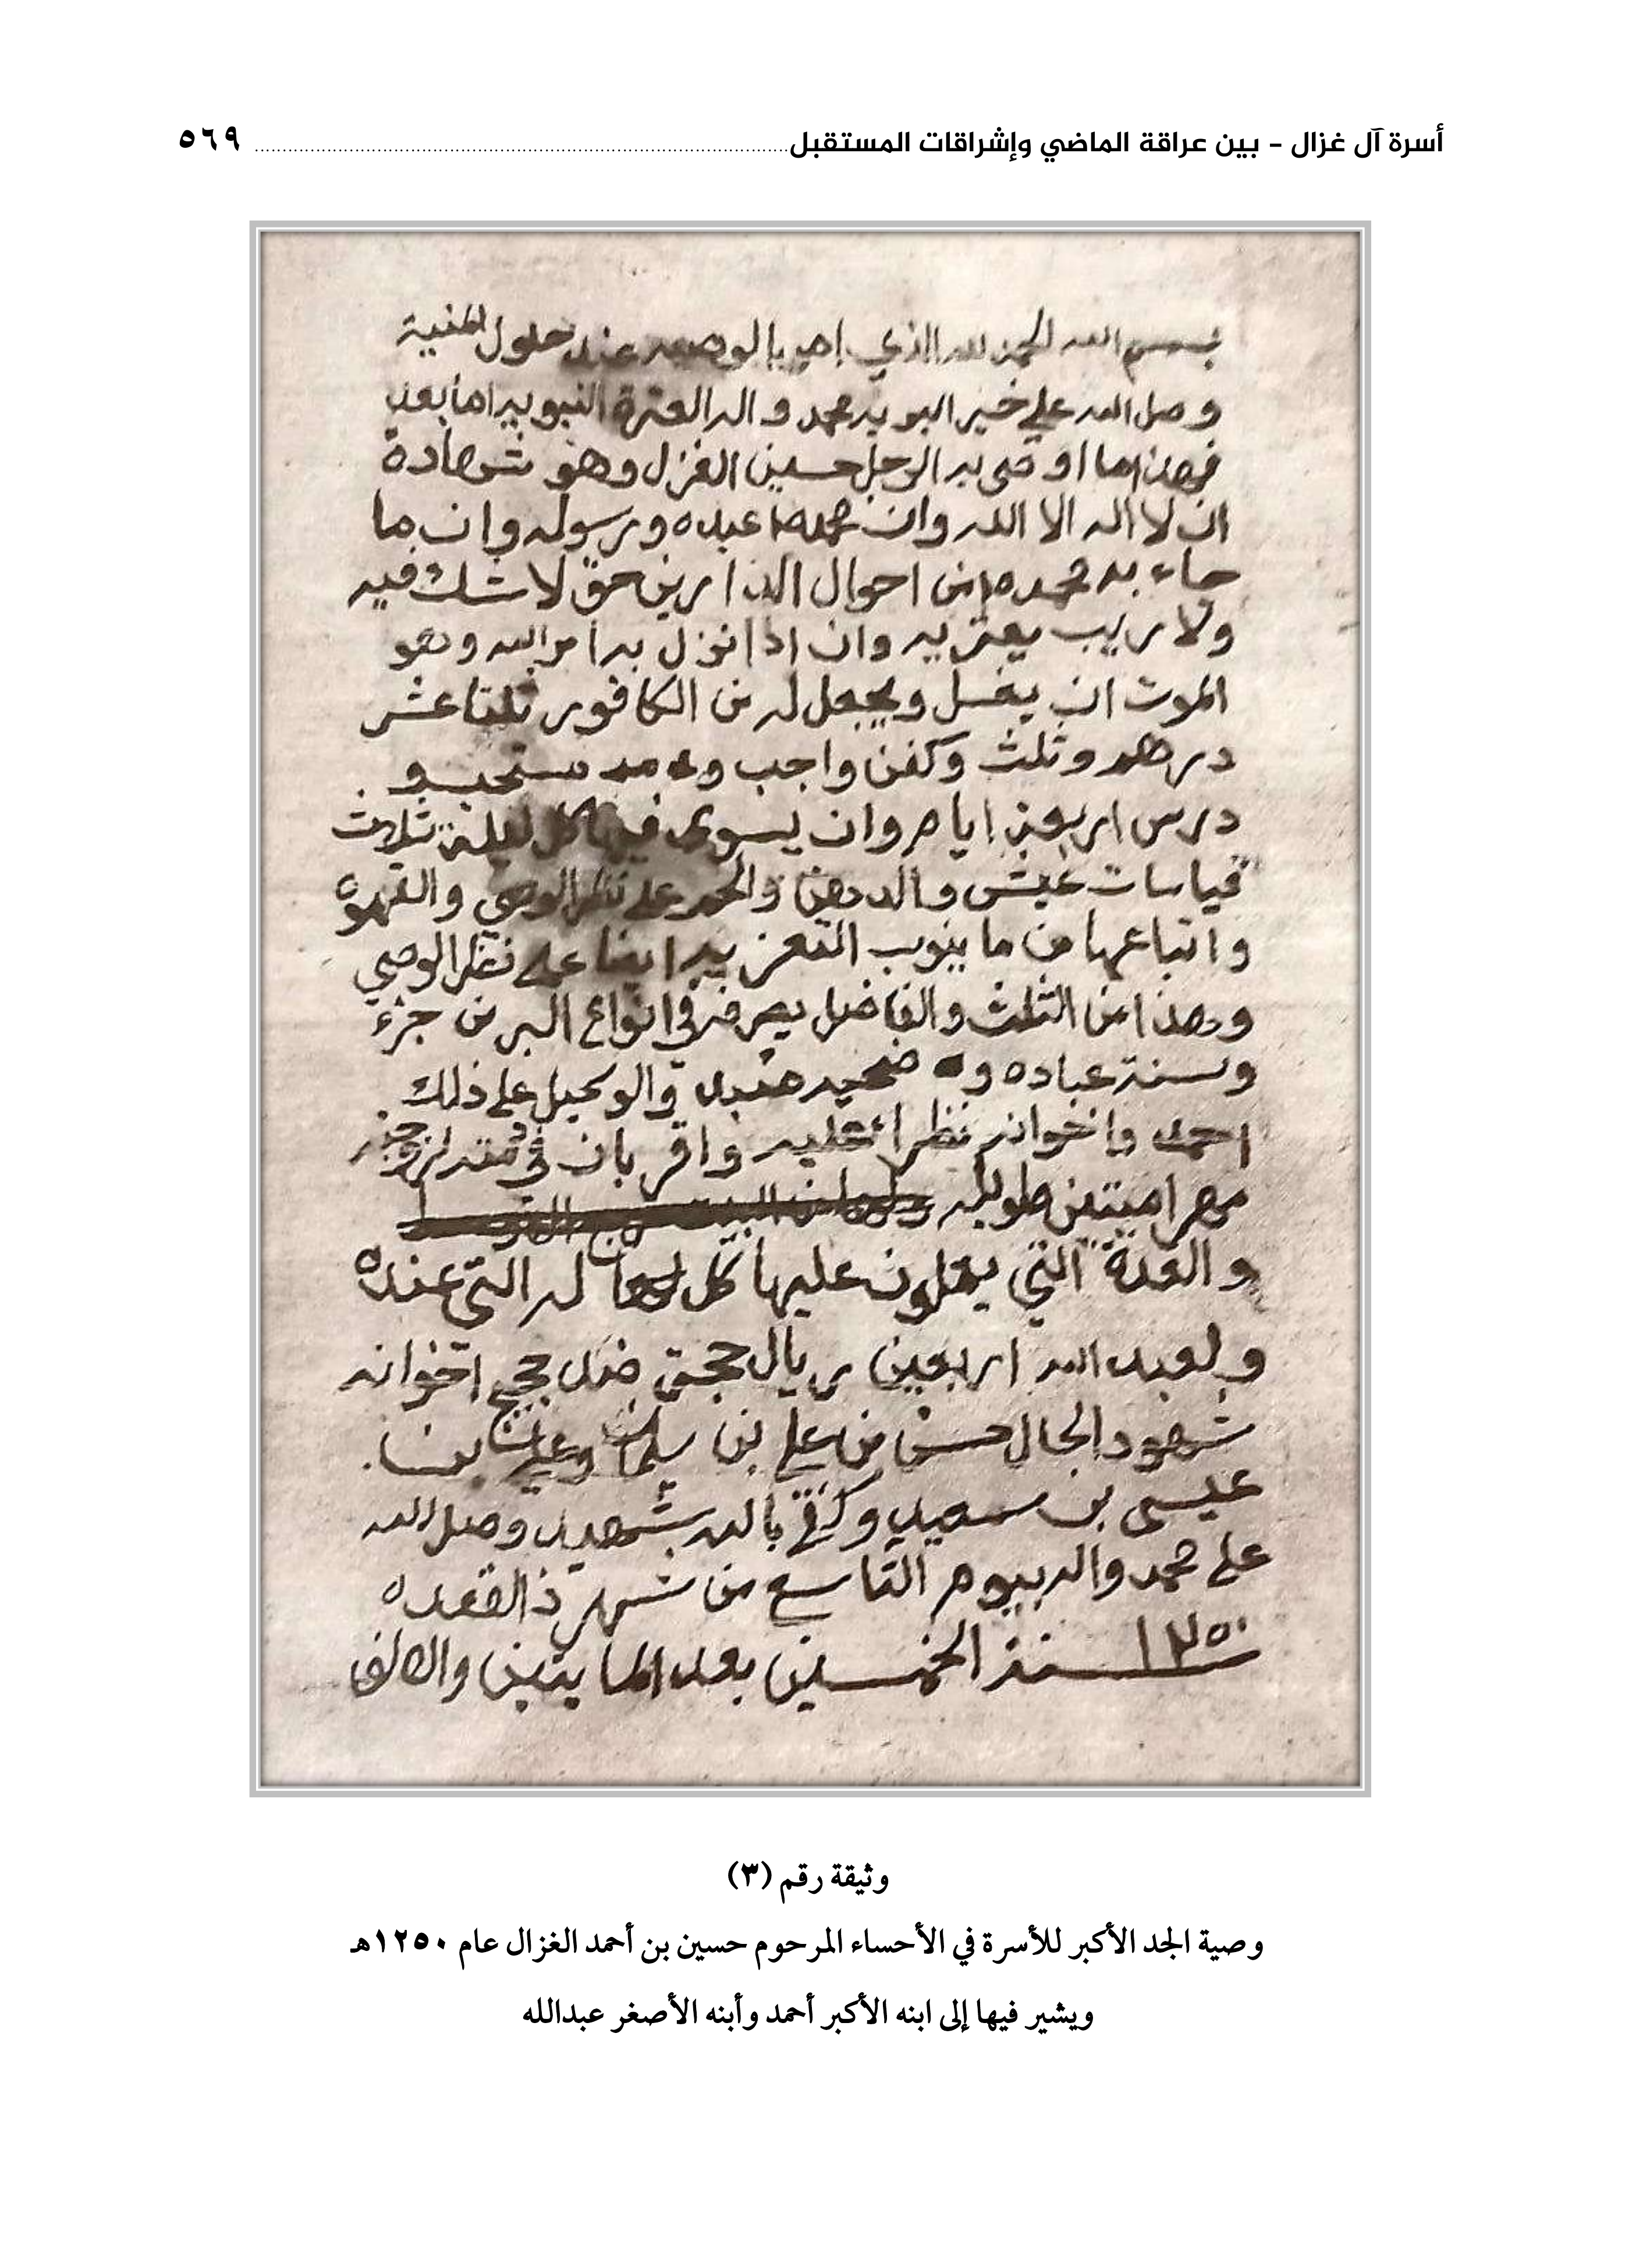 أسرة آل غزال - بين عراقة الماضي وإشراقات المستقبل ٥٦٩
بسم الله الحمد لله الذي امر بالوصيه عند حلول المنية
وصل الله على خير البريه محمد واله العترة النبويه اما بعد
فهذا ما اوصى به الرجل حسين الغزل وهو شهادة
ان لا اله الا الله وان محمدا عبده ورسوله وان ما
جاء به محمد من احوال الدارين حق لا شك فيه
ولا ريب يعتريه وان اذا نزل به امر الله وهو
الموت ان يغسل ويجعل له من الكافور ثلثا عشر
درهم وثلث وكفن واجب و
درس اربعة ايام وان يسوى فيها كل ليلة ثلاث
قياسات عيش والدهن والحم على نظر الوصي والقهوه
واتباعها من ما ينوب التعزيه ايضا على نظر الوصي
وهذا من الثلث والفاضل يصرفه في انواع البر من جزء
وسنة عباده و ضحيه والوكيل على ذلك
احمد واخوانه نظرا عليه واقر بان في ذمته لزوجته
مهرا ميتين طويله
والقدة التي عليها كل له التي عنده
ولعبد الله اربعين ريال حجة اخوانه
شهود الحال حسن من علي بن
عيسى بن سعيد وكفى بالله شهيد وصل الله
على محمد واله بيوم التاسع من شهر ذالقعده
١٢٥٠ سنة الخمسين بعد المايتين والالف
وثيقة رقم (٣)
وصية الجد الأكبر للأسرة في الأحساء المرحوم حسين بن أحمد الغزال عام ١٢٥٠هـ
ويشير فيها إلى ابنه الأكبر أحمد وأبنه الأصغر عبدالله